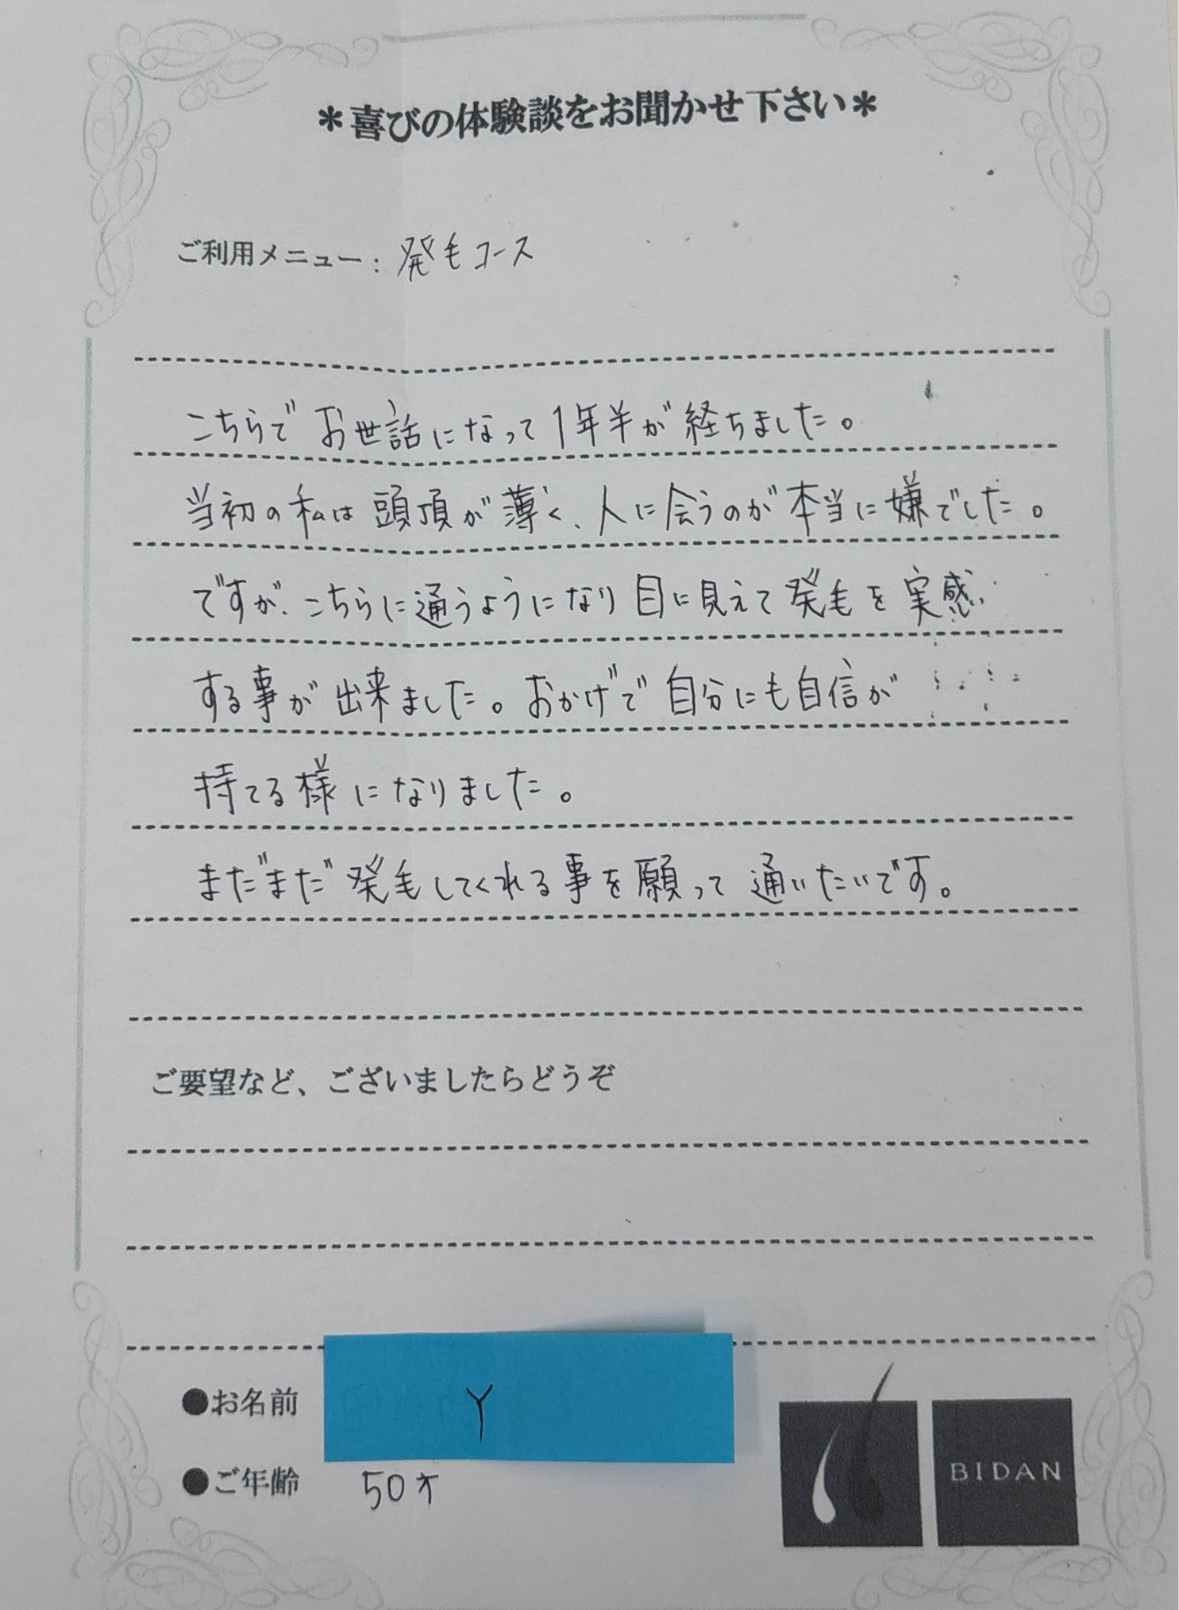 ＊喜びの体験談をお聞かせ下さい＊
ご利用メニュー：発毛コース
こちらでお世話になって1年半が経ちました。
当初の私は頭頂が薄く、人に会うのが本当に嫌でした。
ですが、こちらに通うようになり目に見えて発毛を実感
する事が出来ました。おかげで自分にも自信が
持てる様になりました。
まだまだ発毛してくれる事を願って通いたいです。
ご要望など、ございましたらどうぞ
●お名前 Y
●ご年齢 50才
BIDAN